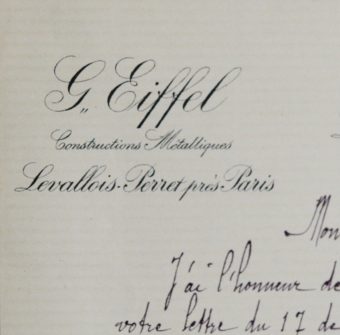 G. Eiffel
Constructions Métalliques
Levallois-Perret près Paris
Mon
J'ai l'honneur de
votre lettre du 17 de